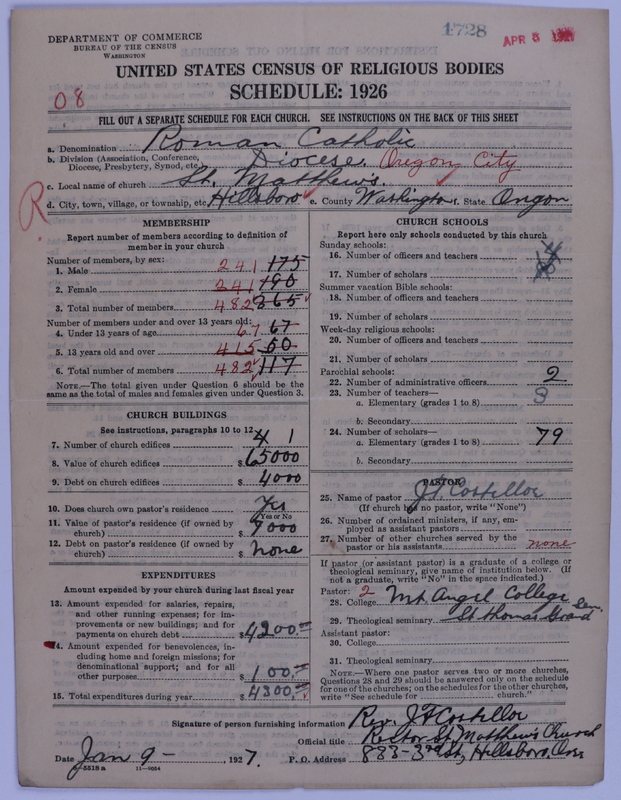 1728
APR 8
DEPARTMENT OF COMMERCE
BUREAU OF THE CENSUS
WASHINGTON
UNITED STATES CENSUS OF RELIGIOUS BODIES
SCHEDULE: 1926
08
FILL OUT A SEPARATE SCHEDULE FOR EACH CHURCH. SEE INSTRUCTIONS ON THE BACK OF THIS SHEET
a. Denomination Roman Catholic
b. Division (Association, Conference, Diocese, Presbytery, Synod, etc.) Diocese Oregon City
c. Local name of church St. Matthew's
R
d. City, town, village, or township, etc. Hillsboro e. County Washington f. State Oregon
MEMBERSHIP
Report number of members according to definition of
member in your church
Number of members, by sex:
1. Male 241 175
2. Female 241 190
3. Total number of members 482 365
Number of members under and over 13 years old:
4. Under 13 years of age 67 67
5. 13 years old and over 415 50
6. Total number of members 482 117
NOTE.—The total given under Question 6 should be
same as the total of males and females given under Question 3.
CHURCH BUILDINGS
See instructions, paragraphs 10 to 12
7. Number of church edifices 1
8. Value of church edifices $ 65000
9. Debt on church edifices $ 4000
10. Does church own pastor's residence? Yes
Yes or No
11. Value of pastor's residence (if owned by
church) $ 7000
12. Debt on pastor's residence (if owned by
church) $ none
EXPENDITURES
Amount expended by your church during last fiscal year
13. Amount expended for salaries, repairs,
and other running expenses; for im-
provements or new buildings; and for
payments on church debt $ 4200.00
14. Amount expended for benevolences, in-
cluding home and foreign missions; for
denominational support; and for all
other purposes $ 100.00
15. Total expenditures during year $ 4300.00
CHURCH SCHOOLS
Report here only schools conducted by this church
Sunday schools:
16. Number of officers and teachers
17. Number of scholars
Summer vacation Bible schools:
18. Number of officers and teachers
19. Number of scholars
Week-day religious schools:
20. Number of officers and teachers
21. Number of scholars
Parochial schools:
22. Number of administrative officers 2
23. Number of teachers—
a. Elementary (grades 1 to 8) 3
b. Secondary
24. Number of scholars—
a. Elementary (grades 1 to 8) 79
b. Secondary
PASTOR
25. Name of pastor J. F. Costelloe
(If church has no pastor, write "None")
26. Number of ordained ministers, if any, em-
ployed as assistant pastors
27. Number of other churches served by the
pastor or his assistants none
If pastor (or assistant pastor) is a graduate of a college or
theological seminary, give name of institution below. (If
not a graduate, write "No" in the space indicated.)
Pastor: 2
28. College Mt Angel College
29. Theological seminary St Thomas Sem.
Assistant pastor:
30. College
31. Theological seminary
NOTE.—Where one pastor serves two or more churches,
Questions 28 and 29 should be answered only on the schedule
for one of the churches; on the schedules for the other churches,
write "See schedule for church."
Signature of person furnishing information Rev. J F Costelloe
Official title Rector St Matthew's Church
Date Jan 9 - , 1927. P. O. Address 888-3rd St, Hillsboro, Ore
5518 a 11—9054